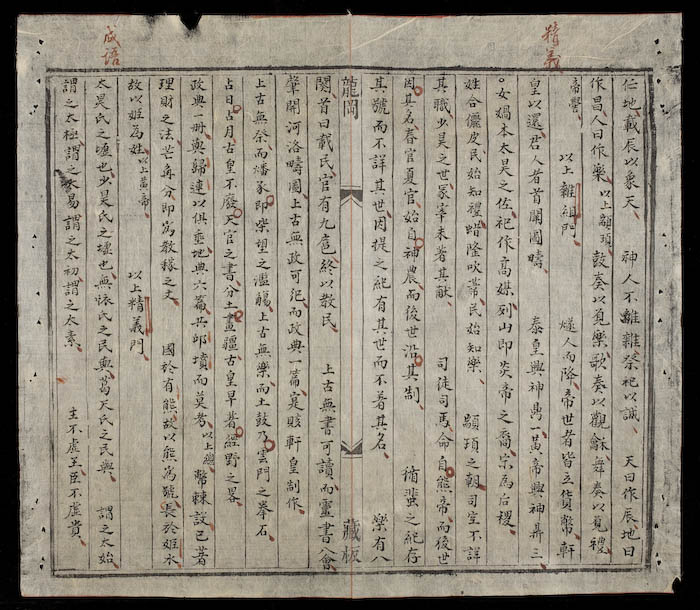 精義
仁地載辰以象天　神人不雜雜祭祀以誠　天曰作辰地曰
作昌人曰作樂以上顓頊　鼓奏以覓樂歌奏以觀龢舞奏以覓禮
帝嚳　以上雜組門　燧人而降帝世者皆立貨幣軒
皇以還君人者首開圖疇　泰皇興神鼎一黃帝興神鼎三
女媧本太昊之佐祀作高媒列山即炎帝之喬宗為后稷
姓合儷皮民始知禮蜡隆吹民始知樂　顓頊之朝司空不詳
其職少昊之世冢宰未著其猷　司徒司馬命自熊帝而後世
因其名春官夏官始自神農而後世沿其制　循蜚之紀存
其號而不詳其世因提之紀有其世而不著其名　樂有八
龍岡　藏板
閡首曰載民官有九扈終以教民　上古無書可讀而靈書八會
肇開河洛疇圖上古無政可紀而政典一篇寔賅軒皇制作
上古無祭而燔豕即柴望之濫觴上古無樂而土鼓乃雲門之拳石
占日占月古皇不廢天官之書分土畫疆古皇早著經野之畧
政典一冊與歸連以俱垂地典六篇共邱墳而莫考以上總　幣棘設已著
理財之法芒再分即為教稼之丈　國於有熊故以熊為號長於姬水
故以姬為姓以上黃帝　以上精義門
成語
太昊氏之墟也少昊氏之墟也無懷氏之民與葛天氏之民與　謂之太始
謂之太極謂之太易謂之太初謂之太素　主不虛王臣不虛貴